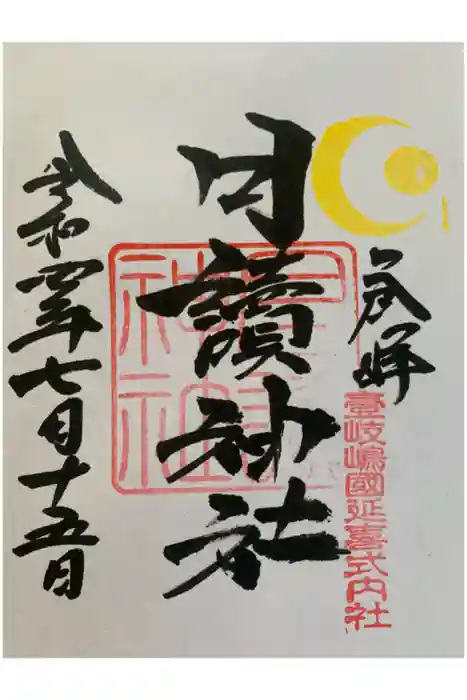 奉拝
壹岐嶋國延喜式内社
月讀神社
令和四年七月十五日